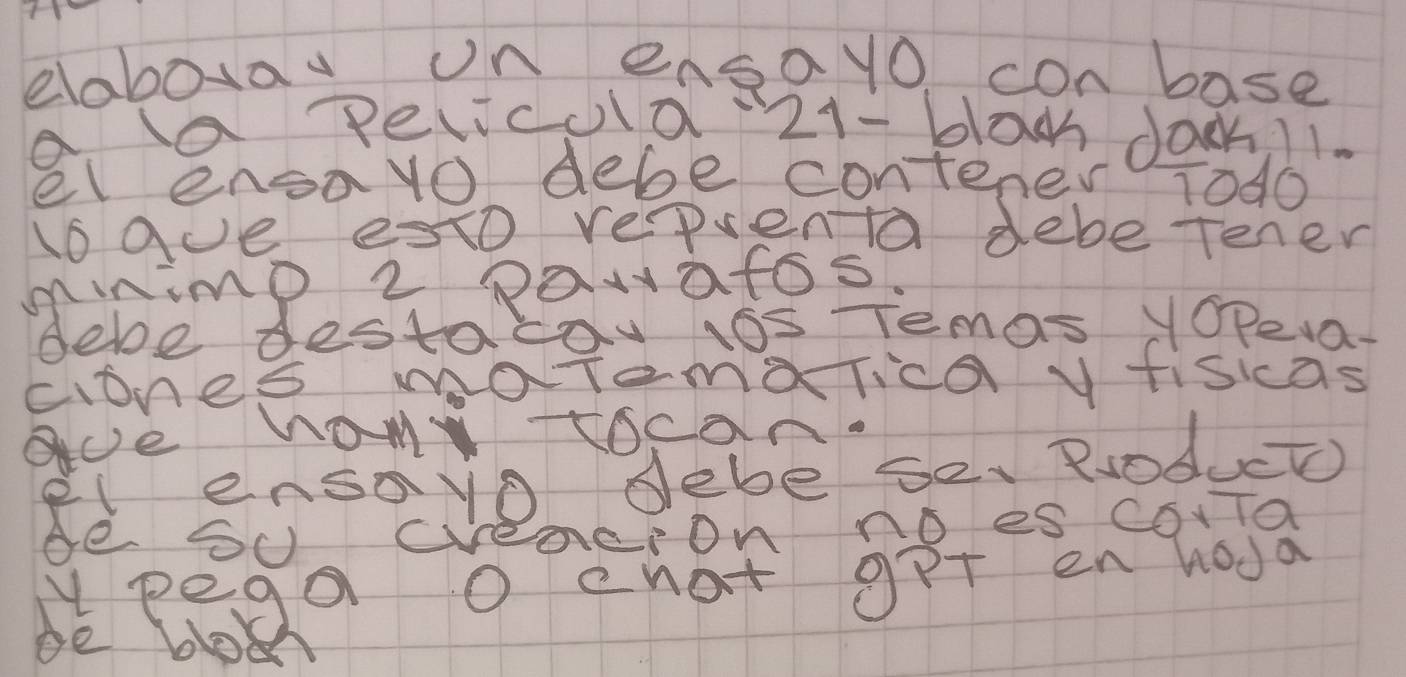 elaborar un ensayo con base
a la Pelicula "21- black Jack".
el ensayo debe contener Todo
lo que esto reprenta debe Tener
minimo 2 parrafos.
debe destacar los Temas y Opera-
ciones matematica y fisicas
que ham tocan.
el ensayo debe ser Producto
de su creacion no es corta
y pega o chat gPT en hoja
de block